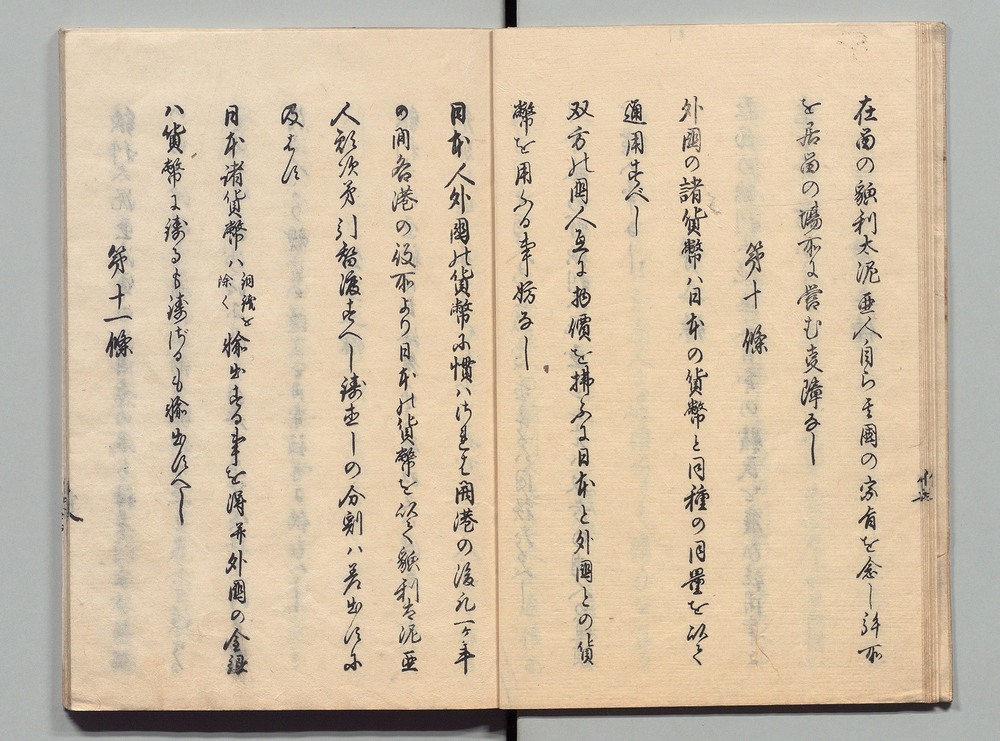 在留の貌利太泥亜人自ら其國の宗旨を念し拝所
を居留の場所に営む事障なし
第十條
外國の諸貨幣ハ日本の貨幣と同種の同量を以て
通用すへし
双方の國人互に物價を拂ふに日本と外國との貨
幣を用ふる事妨なし
日本人外國の貨幣に慣ハされは開港の後凡一ケ年
の間各港の役所より日本の貨幣を以て貌利太泥亜
人願次第引替渡すへし鋳直しの分割ハ差出すに
及はす
日本諸貨幣ハ銅銭を除く輸出する事を得并外國の金銀
ハ貨幣に鋳るも鋳さるも輸出すへし
第十一條